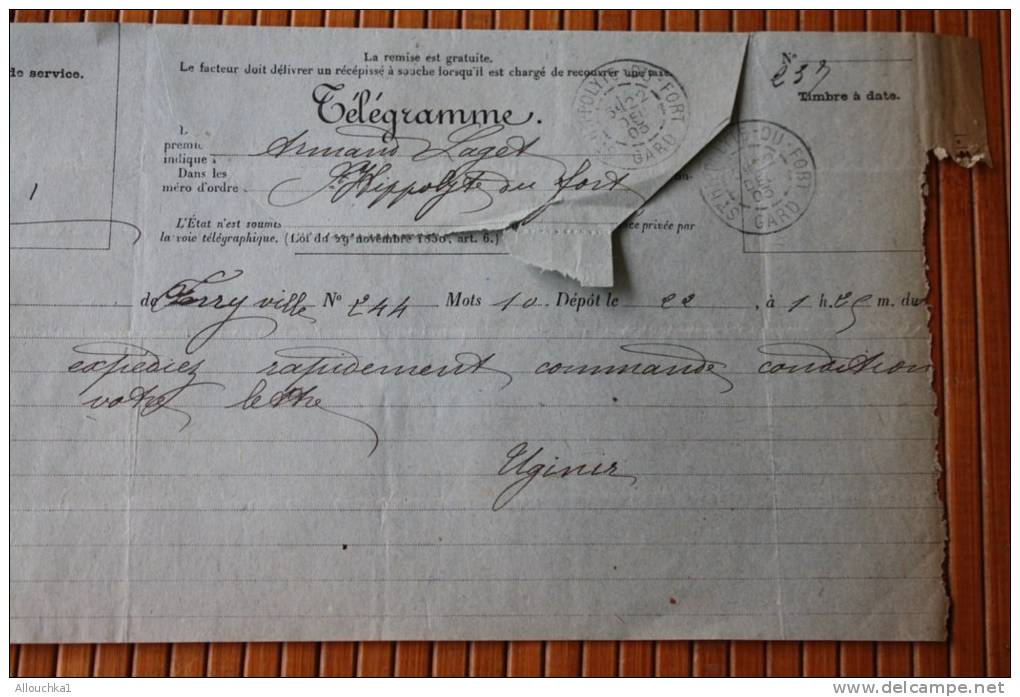 La remise est gratuite.
Le facteur doit délivrer un récépissé à souche lorsqu'il est chargé de recouvrer une taxe.
de service.
N.
237
Timbre à date.
Télégramme.
ST HIPPOLYTE-DU-FORT
GARD
L
premie
indique
Dans les
méro d'ordre
Armand Laget
St Hippolyte du fort
1
ST HIPPOLYTE-DU-FORT
GARD
L'État n'est soumis
ce privée par
la voie télégraphique. (Loi du 29 novembre 1850, art. 6.)
de Ferryville N° 244 Mots 10 Dépôt le 22, à 1 h. 25 m. du
expediez rapidement commande condition
votre lettre
Uginir
Allouchka1
http://www.delcampe.net